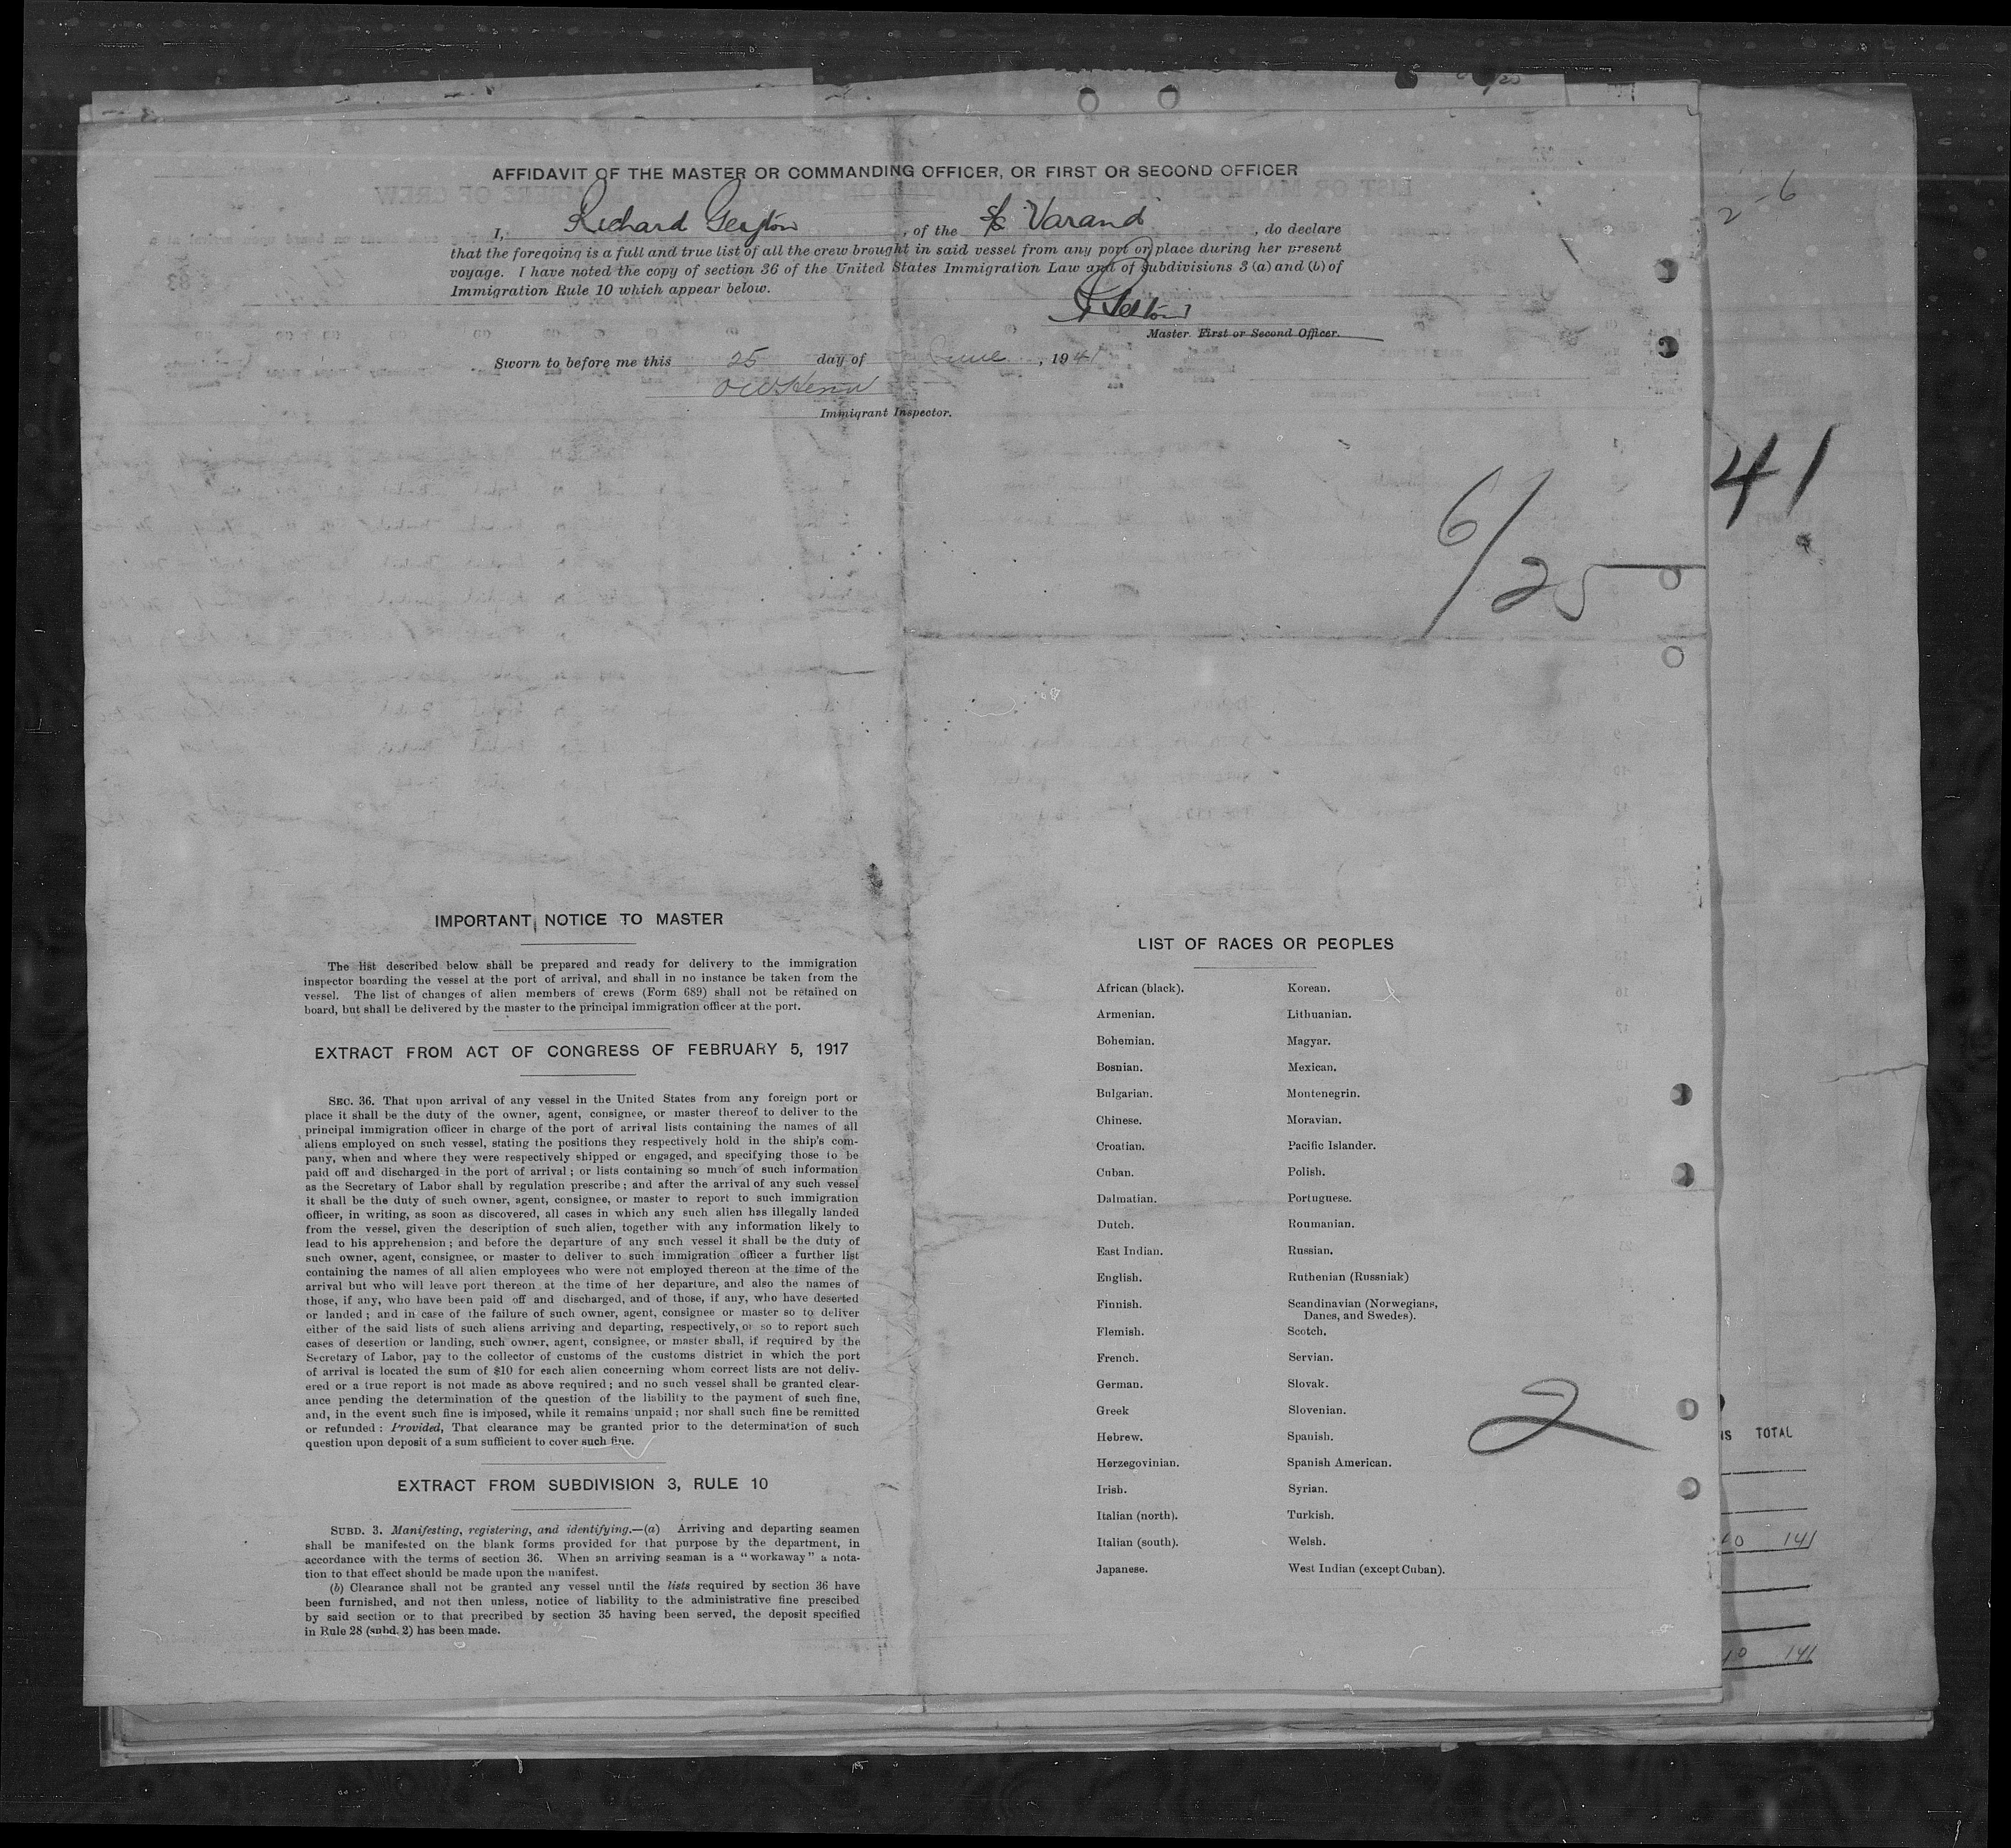 AFFIDAVIT OF THE MASTER OR COMMANDING OFFICER, OR FIRST OR SECOND OFFICER
I, Richard , of the Varand , do declare
that the foregoing is a full and true list of all the crew brought in said vessel from any port or place during her present
voyage. I have noted the copy of section 36 of the United States Immigration Law and of subdivisions 3 (a) and (b) of
Immigration Rule 10 which appear below.
Master. First or Second Officer.
Sworn to before me this 25 day of June , 1941
Immigrant Inspector.
2-6
41
6/25
IMPORTANT NOTICE TO MASTER
The list described below shall be prepared and ready for delivery to the immigration
inspector boarding the vessel at the port of arrival, and shall in no instance be taken from the
vessel. The list of changes of alien members of crews (Form 689) shall not be retained on
board, but shall be delivered by the master to the principal immigration officer at the port.
EXTRACT FROM ACT OF CONGRESS OF FEBRUARY 5, 1917
SEC. 36. That upon arrival of any vessel in the United States from any foreign port or
place it shall be the duty of the owner, agent, consignee, or master thereof to deliver to the
principal immigration officer in charge of the port of arrival lists containing the names of all
aliens employed on such vessel, stating the positions they respectively hold in the ship's com-
pany, when and where they were respectively shipped or engaged, and specifying those to be
paid off and discharged in the port of arrival; or lists containing so much of such information
as the Secretary of Labor shall by regulation prescribe; and after the arrival of any such vessel
it shall be the duty of such owner, agent, consignee, or master to report to such immigration
officer, in writing, as soon as discovered, all cases in which any such alien has illegally landed
from the vessel, given the description of such alien, together with any information likely to
lead to his apprehension; and before the departure of any such vessel it shall be the duty of
such owner, agent, consignee, or master to deliver to such immigration officer a further list
containing the names of all alien employees who were not employed thereon at the time of the
arrival but who will leave port thereon at the time of her departure, and also the names of
those, if any, who have been paid off and discharged, and of those, if any, who have deserted
or landed; and in case of the failure of such owner, agent, consignee or master so to deliver
either of the said lists of such aliens arriving and departing, respectively, or so to report such
cases of desertion or landing, such owner, agent, consignee, or master shall, if required by the
Secretary of Labor, pay to the collector of customs of the customs district in which the port
of arrival is located the sum of $10 for each alien concerning whom correct lists are not deliv-
ered or a true report is not made as above required; and no such vessel shall be granted clear-
ance pending the determination of the question of the liability to the payment of such fine,
and, in the event such fine is imposed, while it remains unpaid; nor shall such fine be remitted
or refunded: Provided, That clearance may be granted prior to the determination of such
question upon deposit of a sum sufficient to cover such fine.
EXTRACT FROM SUBDIVISION 3, RULE 10
SUBD. 3. Manifesting, registering, and identifying.—(a) Arriving and departing seamen
shall be manifested on the blank forms provided for that purpose by the department, in
accordance with the terms of section 36. When an arriving seaman is a "workaway" a nota-
tion to that effect should be made upon the manifest.
(b) Clearance shall not be granted any vessel until the lists required by section 36 have
been furnished, and not then unless, notice of liability to the administrative fine prescibed
by said section or to that precribed by section 35 having been served, the deposit specified
in Rule 28 (subd. 2) has been made.
LIST OF RACES OR PEOPLES
African (black). Korean.
Armenian. Lithuanian.
Bohemian. Magyar.
Bosnian. Mexican.
Bulgarian. Montenegrin.
Chinese. Moravian.
Croatian. Pacific Islander.
Cuban. Polish.
Dalmatian. Portuguese.
Dutch. Roumanian.
East Indian. Russian.
English. Ruthenian (Russniak)
Finnish. Scandinavian (Norwegians,
Danes, and Swedes).
Flemish. Scotch.
French. Servian.
German. Slovak.
Greek Slovenian.
Hebrew. Spanish.
Herzegovinian. Spanish American.
Irish. Syrian.
Italian (north). Turkish.
Italian (south). Welsh.
Japanese. West Indian (except Cuban).
2
TOTAL
141
141